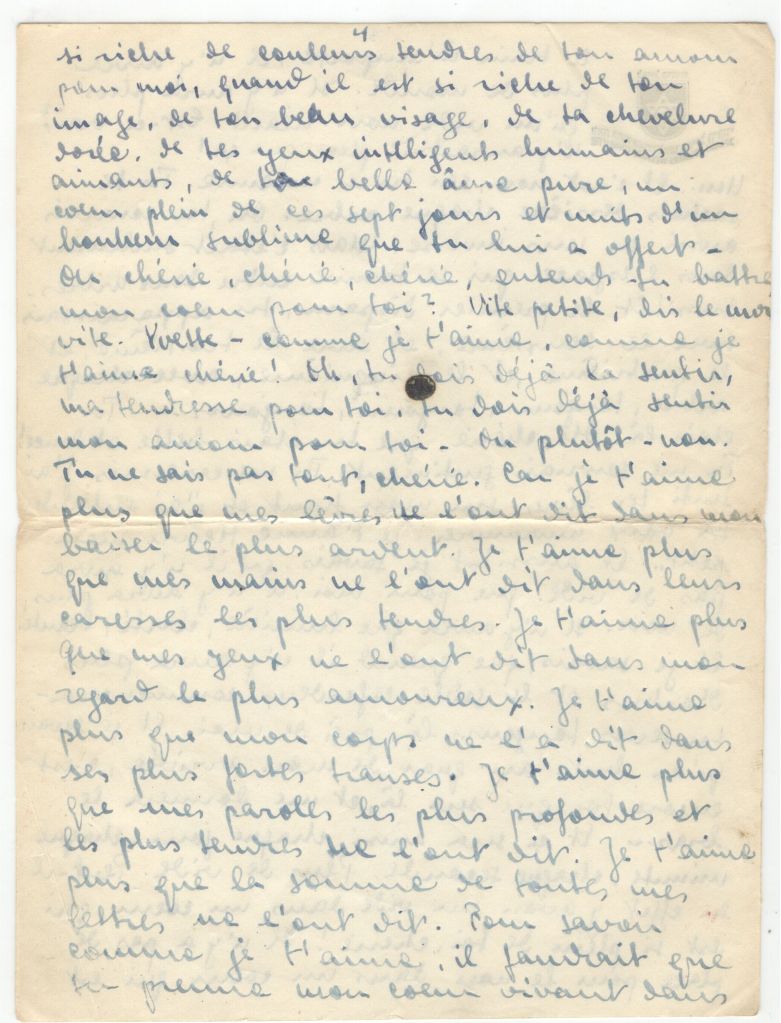 4
si riche de couleurs tendres de ton amour
pour moi, quand il est si riche de ton
image, de ton beau visage, de ta chevelure
dorée, de tes yeux intelligents humains et
aimants, de ta belle âme pure, un
coeur plein de ces sept jours et nuits d'un
bonheur sublime que tu lui a offert -
Oh chérie, chérie, chérie, entends-tu battre
mon coeur pour toi? Vite petite, dis le moi
vite. Yvette - comme je t'aime, comme je
t'aime chérie! Oh, tu dois déjà la sentir,
ma tendresse pour toi, tu dois déjà sentir
mon amour pour toi - Ou plutôt - non.
Tu ne sais pas tout, chérie. Car je t'aime
plus que mes lèvres ne l'ont dit dans mon
baiser le plus ardent. Je t'aime plus
que mes mains ne l'ont dit dans leurs
caresses les plus tendres. Je t'aime plus
que mes yeux ne l'ont dit dans mon
regard le plus amoureux. Je t'aime
plus que mon corps ne l'a dit dans
ses plus fortes transes. Je t'aime plus
que mes paroles les plus profondes et
les plus tendres ne l'ont dit. Je t'aime
plus que la somme de toutes mes
lettres ne l'ont dit. Pour savoir
comme je t'aime, il faudrait que
tu prenne mon coeur vivant dans